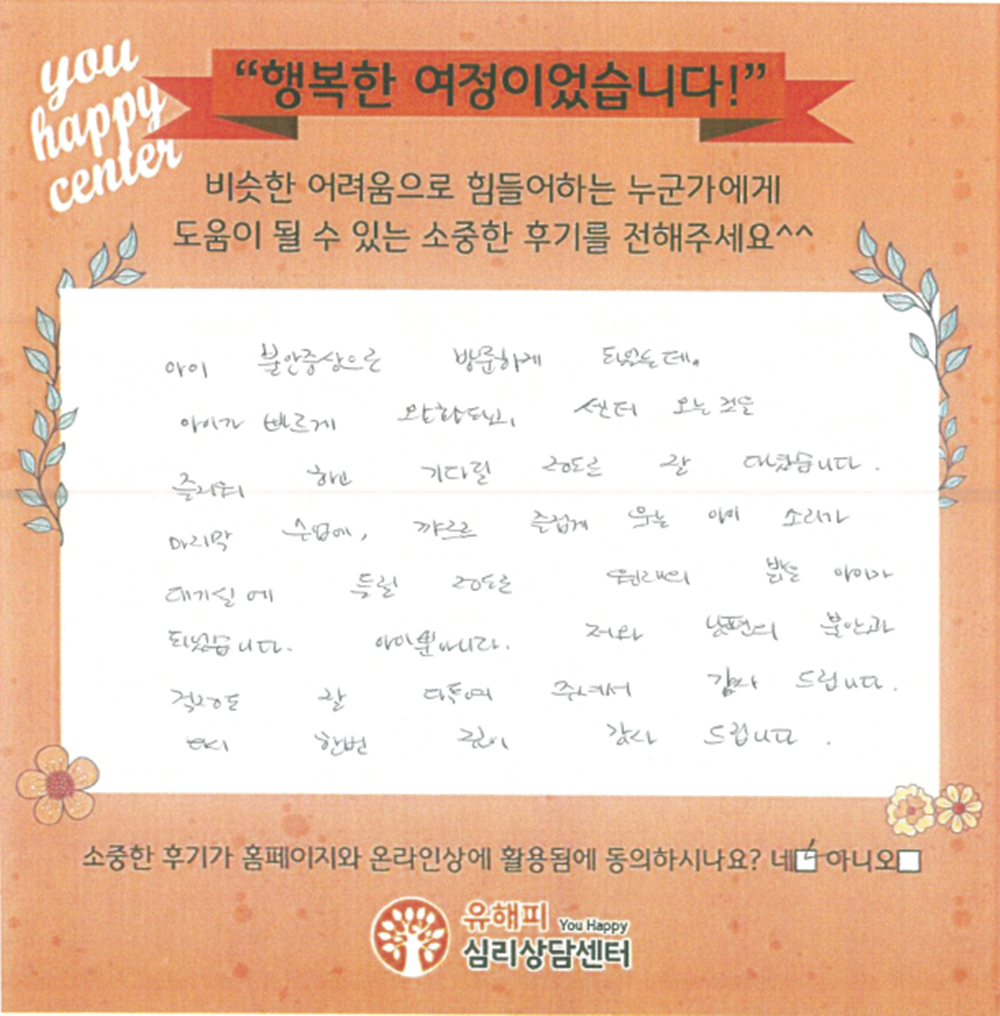 you
happy
center
“행복한 여정이었습니다!”
비슷한 어려움으로 힘들어하는 누군가에게
도움이 될 수 있는 소중한 후기를 전해주세요^^
아이 불안증상으로 방문하게 되었는데,
아이가 빠르게 완화되고, 센터 오는 것을
즐거워 하고 기다릴 정도로 잘 다녔습니다.
마지막 수업에, 꺄르르 즐겁게 웃는 아이 소리가
대기실에 들릴 정도로 원래의 밝은 아이가
되었습니다. 아이뿐아니라, 저와 남편의 불안과
걱정도 잘 다독여 주셔서 감사 드립니다.
다시 한번 깊이 감사 드립니다.
소중한 후기가 홈페이지와 온라인상에 활용됨에 동의하시나요? 네 아니오
유해피 You Happy
심리상담센터